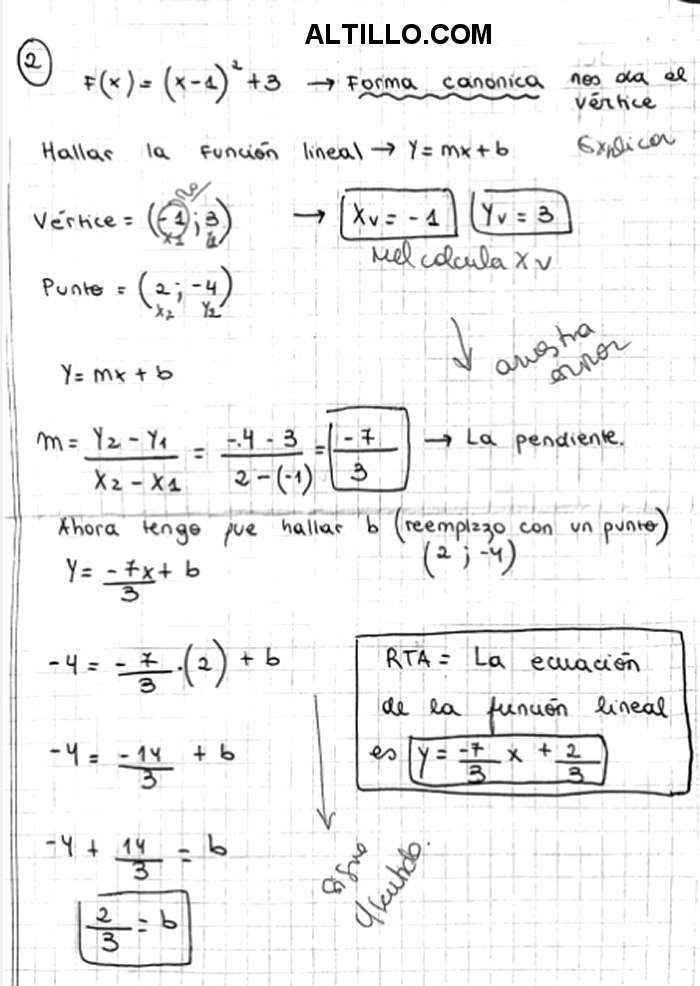 ALTILLO.COM
2
F(x) = (x-1)² + 3 → Forma canonica nos da el vértice
Explicar
Hallar la función lineal → Y = mx + b
no
Vértice = (-1 ; 3) → Xv = -1 Yv = 3
x1 y1
Mal calcula Xv
Punto = (2 ; -4)
X2 Y2
arrastra error
Y = mx + b
m = Y2 - Y1 / X2 - X1 = -4 - 3 / 2 - (-1) = -7/3 → La pendiente.
Ahora tengo que hallar b (reemplazo con un punto)
(2 ; -4)
Y = -7x/3 + b
-4 = -7/3 . (2) + b
-4 = -14/3 + b
-4 + 14/3 = b
2/3 = b
RTA = La ecuación
de la función lineal
es Y = -7/3 x + 2/3